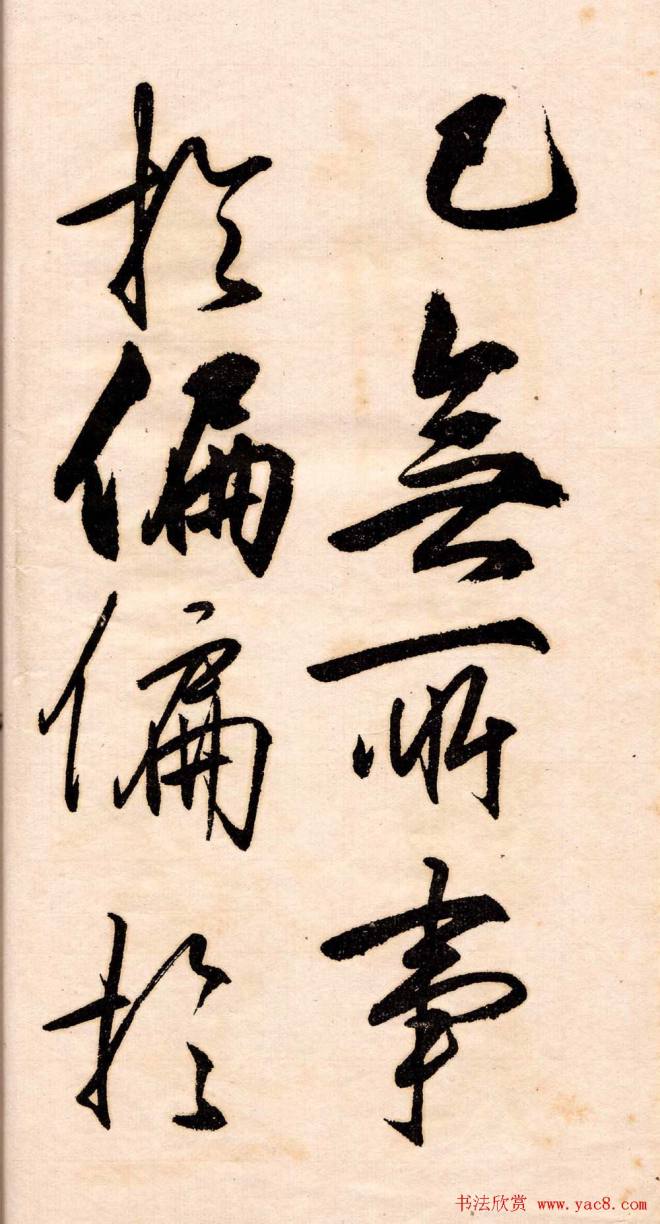 已無所事
於偏偏於
书法欣赏 www.yac8.com